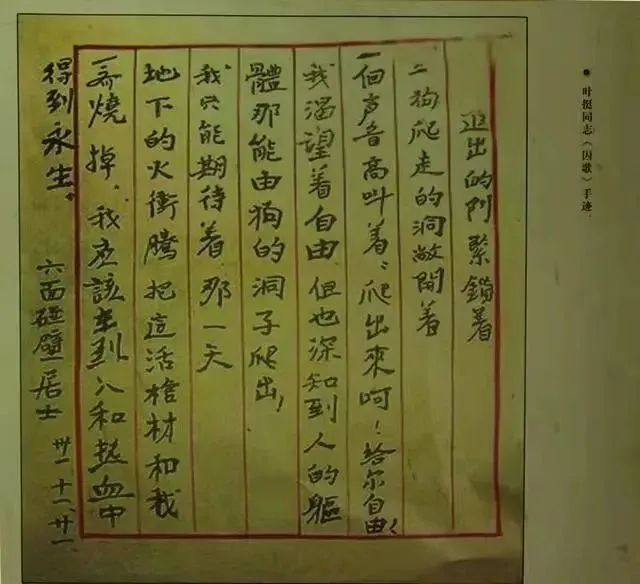 叶挺同志《囚歌》手迹
进出的门紧鎖着
二狗爬走的洞敞開着
一個声音高叫着、爬出來呵！給尔自由！
我渴望着自由但也深知到人的軀
體那能由狗的洞子爬出！
我只能期待着、那一天
地下的火衝騰把這活棺材和我
一斉燒掉、我应該在烈火和热血中
得到永生。
六面碰壁居士 卅一、十一、廿一